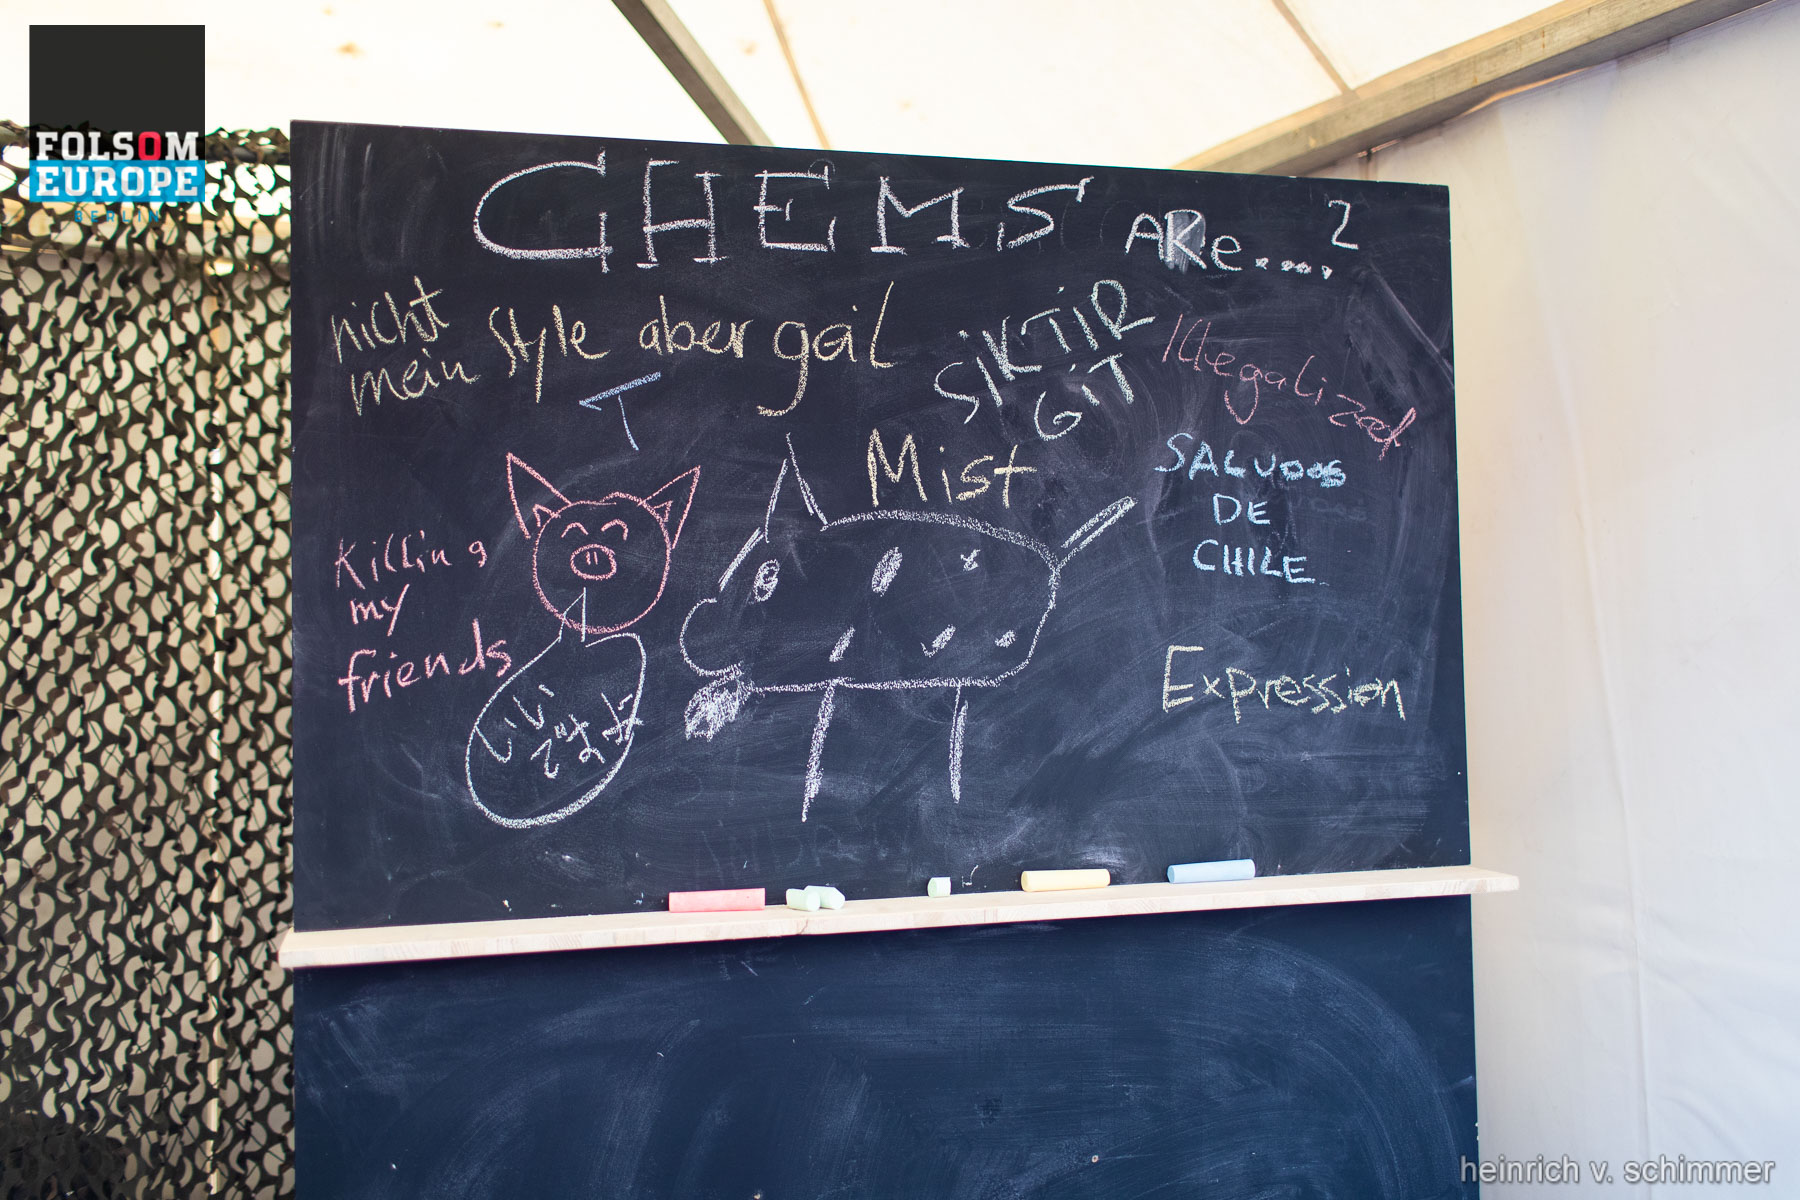 FOLSOM
EUROPE
BERLIN
CHEMS ARE.... ?
nicht
mein Style aber geil
SIKTIR
GIT
Illegalized
T
Mist
SALUDOS
DE
CHILE
Killing
my
friends
Expression
heinrich v. schimmer